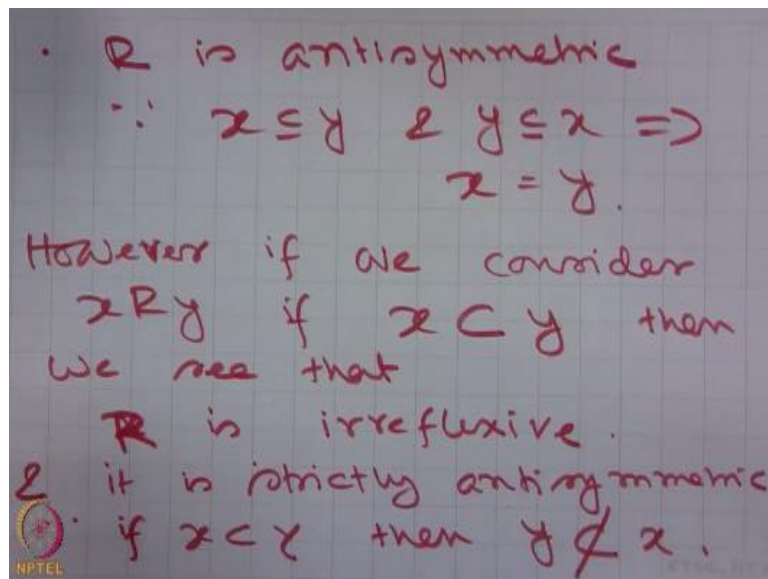 · R is antisymmetric
∵ x ⊆ y & y ⊆ x =>
x = y.
However if we consider
xRy if x ⊂ y then
we see that
R is irreflexive.
& it is strictly antisymmetric
∵ if x ⊂ y then y ⊄ x.
NPTEL